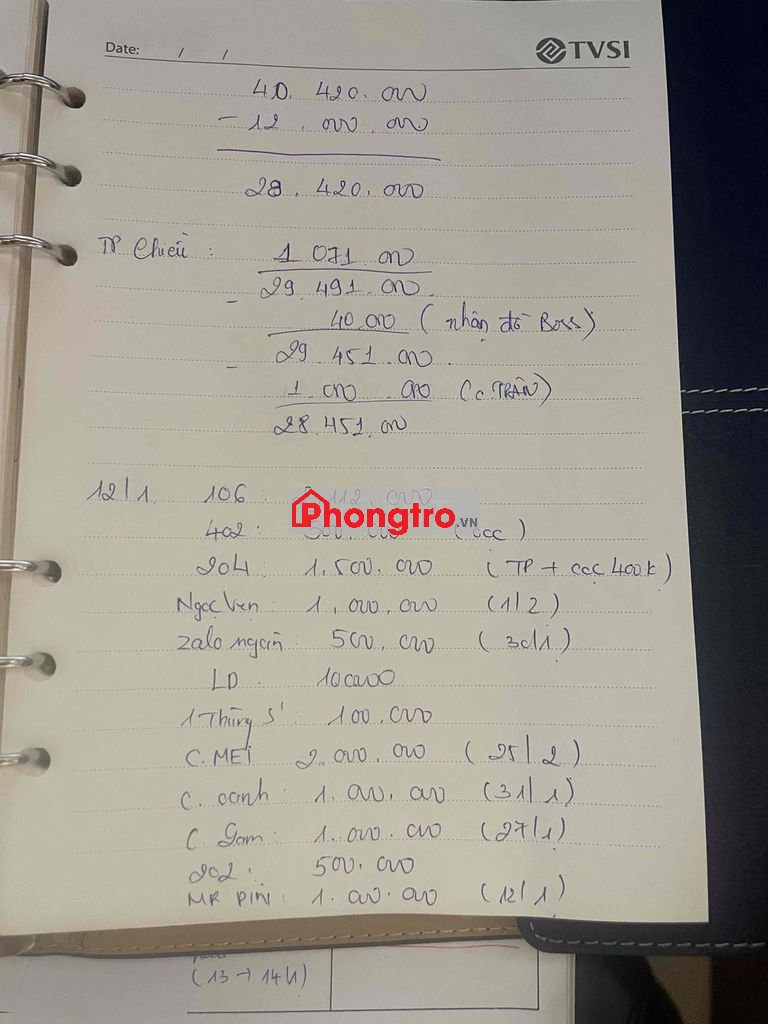 Date: / / TVSI
40.420.000
- 12.000.000
28.420.000
TP Chiều: 1 071 000
- 29.491.000
40.000 (nhận đồ Boss)
- 29.451.000.
1.000.000 (C.TRÂN)
28.451.000
12/1 106: 112.000
Phongtro.VN
402: 500.000
204: 1.500.000 (TP + cọc 400k)
1.000.000 (1/2)
Zalo ngân: 500.000
LD: 100000
1 Thùng S': 100.000
C.MEI 2.000.000 (25/2)
C. oanh: 1.000.000 (31/1)
C Gam: 1.000.000 (27/1)
202: 500.000
MR PINI: 1.000.000 (12/1)
(13 → 14h)